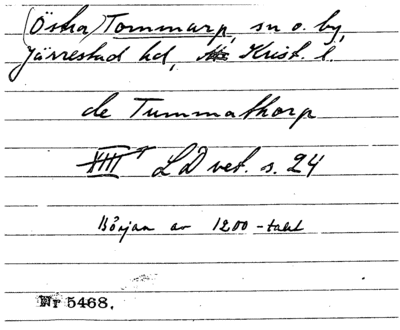 (Östra) Tommarp, sn o. by,
Järrestad hd, Krist. l.
de Tummathorp
XIII LD vet. s. 24
Början av 1200-talet
Nr 5468.